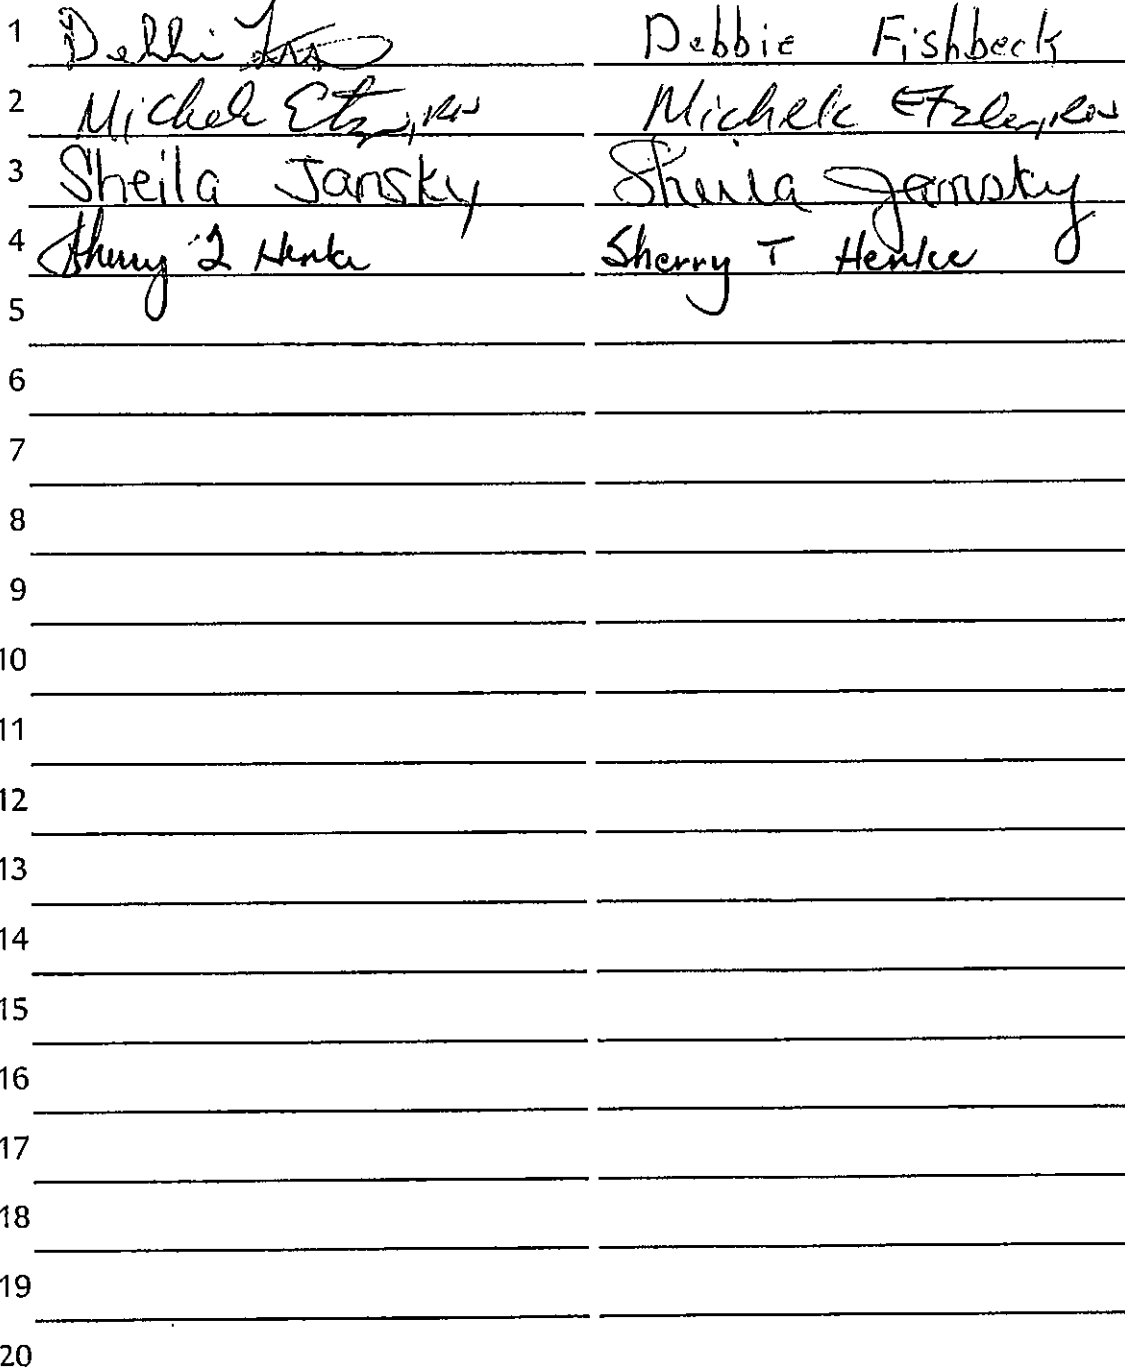 1 Debbi Debbie Fishbeck
2 Michele Etzler, RN Michele Etzler, RN
3 Sheila Jansky Sheila Jansky
4 Sherry T Henke Sherry T Henke
5
6
7
8
9
10
11
12
13
14
15
16
17
18
19
20